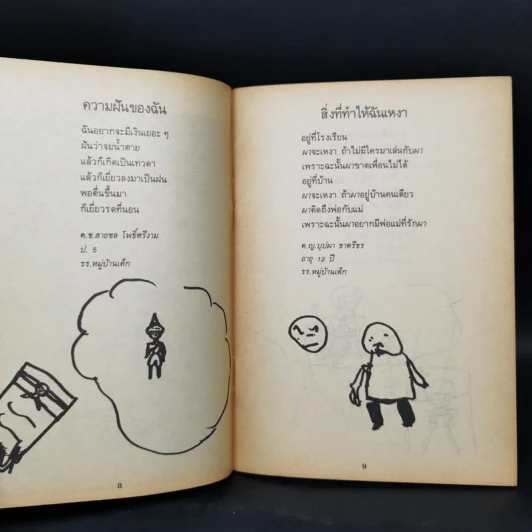 ความฝันของฉัน
ฉันอยากจะมีเงินเยอะ ๆ
ฝันว่าจมน้ำตาย
แล้วก็เกิดเป็นเทวดา
แล้วก็เยี่ยวลงมาเป็นฝน
พอตื่นขึ้นมา
ก็เยี่ยวรดที่นอน
ด.ช.สายชล โพธิ์ศรีงาม
ป. 5
รร.หมู่บ้านเด็ก
8
สิ่งที่ทำให้ฉันเหงา
อยู่ที่โรงเรียน
ผาจะเหงา ถ้าไม่มีใครมาเล่นกับผา
เพราะฉะนั้นผาขาดเพื่อนไม่ได้
อยู่ที่บ้าน
ผาจะเหงา ถ้าผาอยู่บ้านคนเดียว
ผาคิดถึงพ่อกับแม่
เพราะฉะนั้นผาอยากมีพ่อแม่ที่รักผา
ด.ญ.บุปผา ชาตรีธร
อายุ 12 ปี
รร.หมู่บ้านเด็ก
9